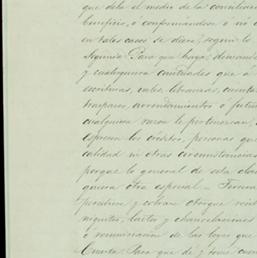 que deba el medio de la conciliacion
beneficio, o conformandose o no
en tales casos se diere, segun lo
Segunda Para que haga, demande
y cualesquiera cantidades que a
escrituras, vales, libranzas, cuentas
traspasos, arrendamientos o
cualquiera razon le pertenezcan,
espresen los creditos, personas que
calidad ni otras circunstancias
porque lo general de esta
quiera otra especial = Tercera
perciba y cobre otorgue
cartas y chancelaciones
o renunciacion de las leyes que
Cuarta Para que de y tome